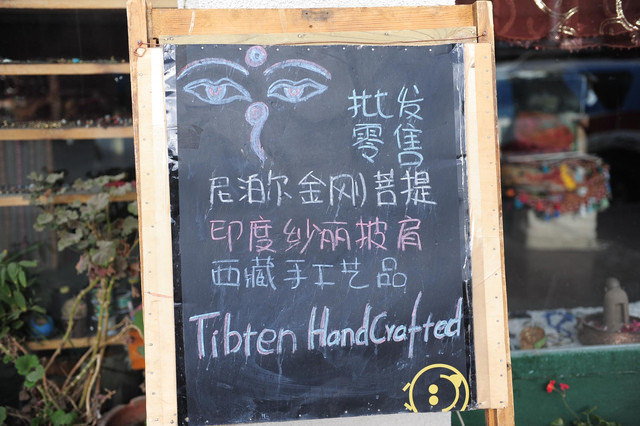 批发
零售
尼泊尔金刚菩提
印度纱丽披肩
西藏手工艺品
Tibten HandCrafted